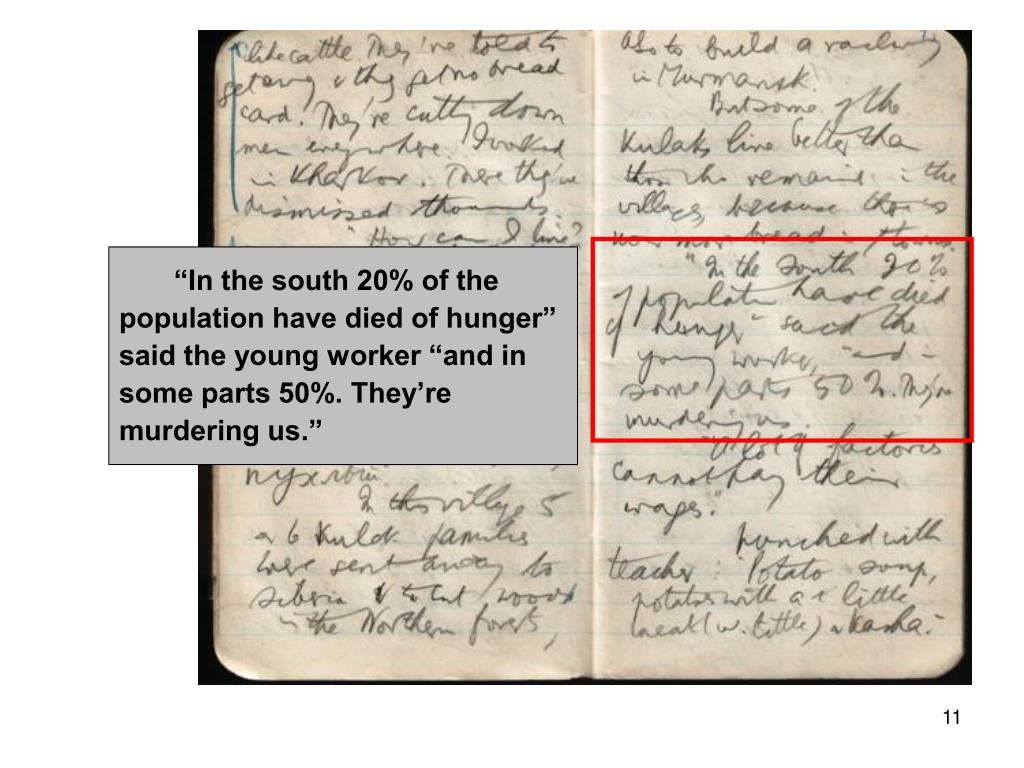 like cattle. They're told to
get away & they get no bread
card. They're cutting down
men everywhere. I worked
in Kharkov. There they've
dismissed thousands.
"How can I live?
In this village 5
or 6 Kulak families
were sent away to
Siberia & to cut wood
in the Northern forests,
Also to build a railway
in Murmansk.
But some of the
Kulaks live better than
those who remain in the
villages, because there is
now more bread in towns.
"In the South 20%
of population have died
of hunger" said the
young worker, "and in
some parts 50%. They're
murdering us."
"A lot of factories
cannot pay their
wages."
Lunched with
teacher: Potato soup,
potatoes with a little
meat (v. little) & kasha.
"In the south 20% of the
population have died of hunger"
said the young worker "and in
some parts 50%. They're
murdering us."
11